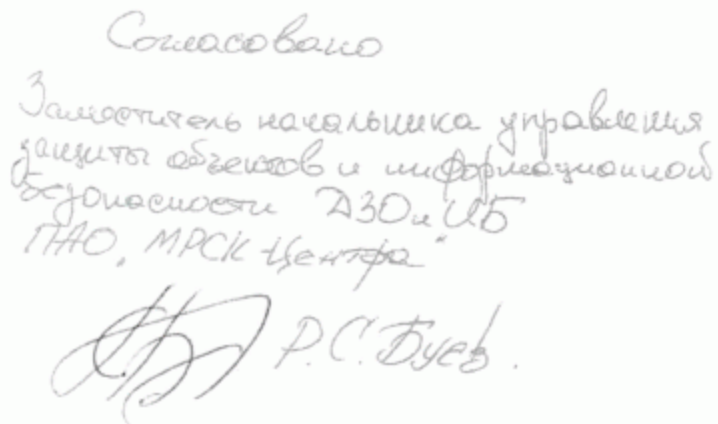 Согласовано
Заместитель начальника управления
защиты объектов и информационной
безопасности ДЗО и ИБ
ПАО „МРСК Центра"
Р.С. Буев.